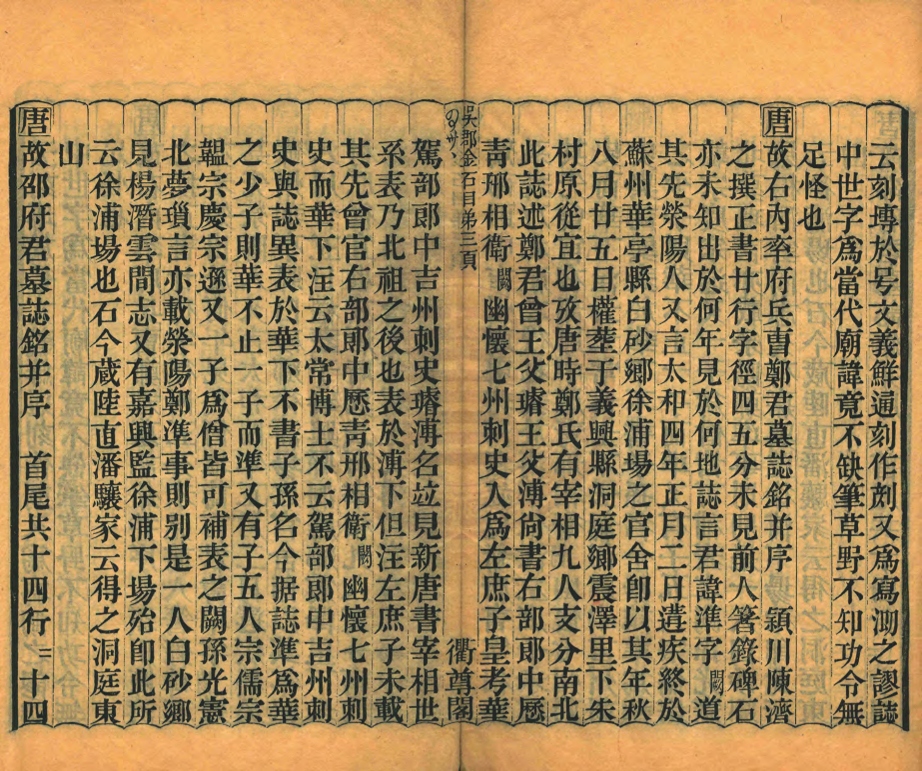 云刻塼於号文義鮮通刻作刾又爲寫泐之謬誌
中世字爲當代廟諱竟不缺筆草野不知功令無
足怪也
唐故右內率府兵曹鄭君墓誌銘并序 潁川陳濟
之撰正書廿行字徑四五分未見前人箸錄碑石
亦未知出於何年見於何地誌言君諱準字闕道
其先滎陽人又言太和四年正月二日遘疾終於
蘇州華亭縣白砂鄉徐浦場之官舍卽以其年秋
八月廿五日權塟于義興縣洞庭鄉震澤里下朱
村原從宜也攷唐時鄭氏有宰相九人支分南北
此誌述鄭君曾王父璿王父溥尙書右部郞中歷
靑邢相衛闕幽懷七州刺史入爲左庶子皇考華
吳郡金石目弟三頁
衢尊閣
駕部郞中吉州刺史璿溥名竝見新唐書宰相世
系表乃北祖之後也表於溥下但注左庶子未載
其先曾官右部郞中歷靑邢相衛闕幽懷七州刺
史而華下注云太常博士不云駕部郞中吉州刺
史與誌異表於華下不書子孫名今据誌準爲華
之少子則華不止一子而準又有子五人宗儒宗
韞宗慶宗遜又一子爲僧皆可補表之闕孫光憲
北夢瑣言亦載滎陽鄭準事則別是一人白砂鄉
見楊潛雲間志又有嘉興監徐浦下場殆卽此所
云徐浦場也石今蔵陸直潘驤家云得之洞庭東
山
唐故邵府君墓誌銘并序 首尾共十四行二十四